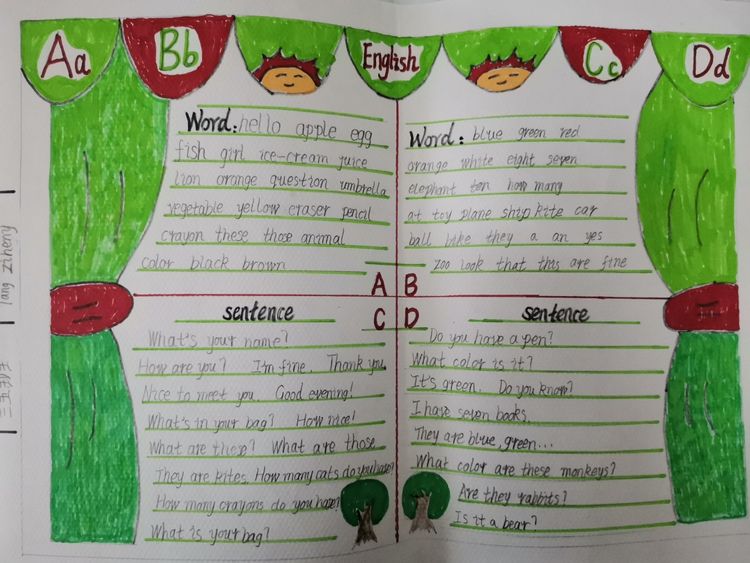 Aa Bb English Cc Dd
Word: hello apple egg
fish girl ice-cream juice
lion orange question umbrella
vegetable yellow eraser pencil
crayon these those animal
color black brown
A
Word: blue green red
orange white eight seven
elephant ten how many
at toy plane ship kite car
ball bike they a an yes
zoo look that this are fine
B
sentence
C
What's your name?
How are you? I'm fine. Thank you
Nice to meet you. Good evening!
What's in your bag? How nice!
What are these? What are those
They are kites. How many cats do you have?
How many crayons do you have?
What is your bag?
sentence
D
Do you have a pen?
What color is it?
It's green. Do you know?
I have seven books.
They are blue, green...
What color are these monkeys?
Are they rabbits?
Is it a bear?